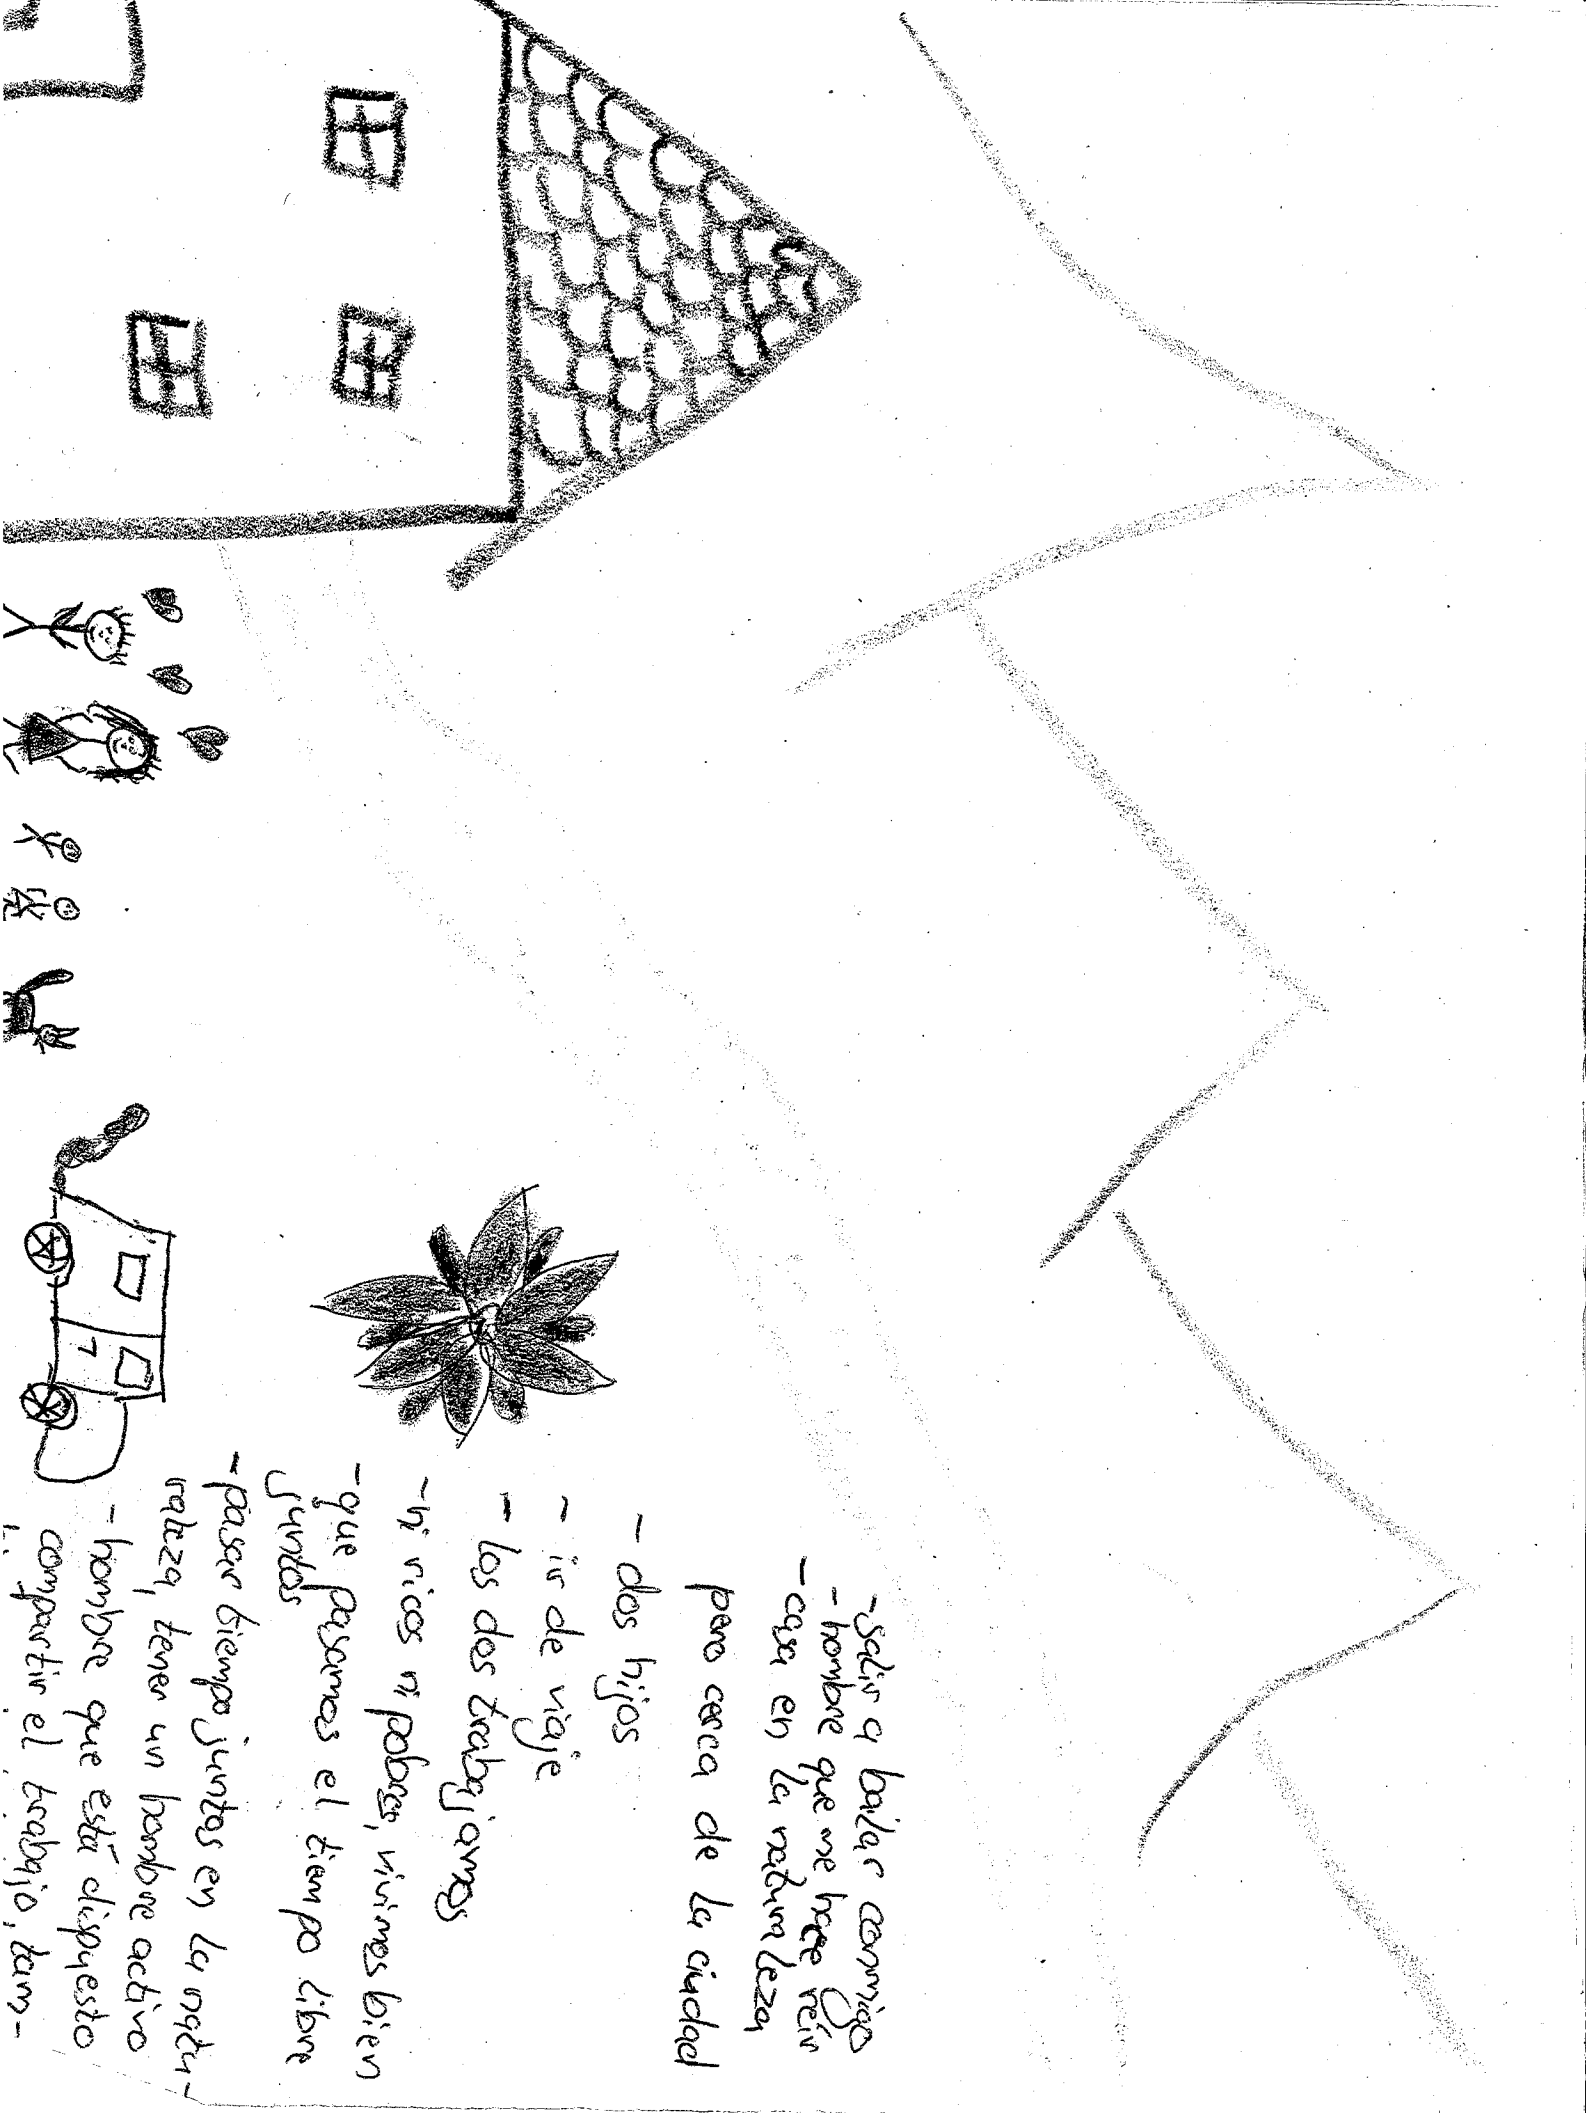 -salir a bailar conmigo
- hombre que me hace reír
-casa en la naturaleza
pero cerca de la ciudad
- dos hijos
- ir de viaje
- los dos trabajamos
-ni ricos ni pobres, vivimos bien
-que pasamos el tiempo libre
juntos
-pasar tiempo juntos en la natu-
raleza, tener un hombre activo
- hombre que está dispuesto
compartir el trabajo, tam-